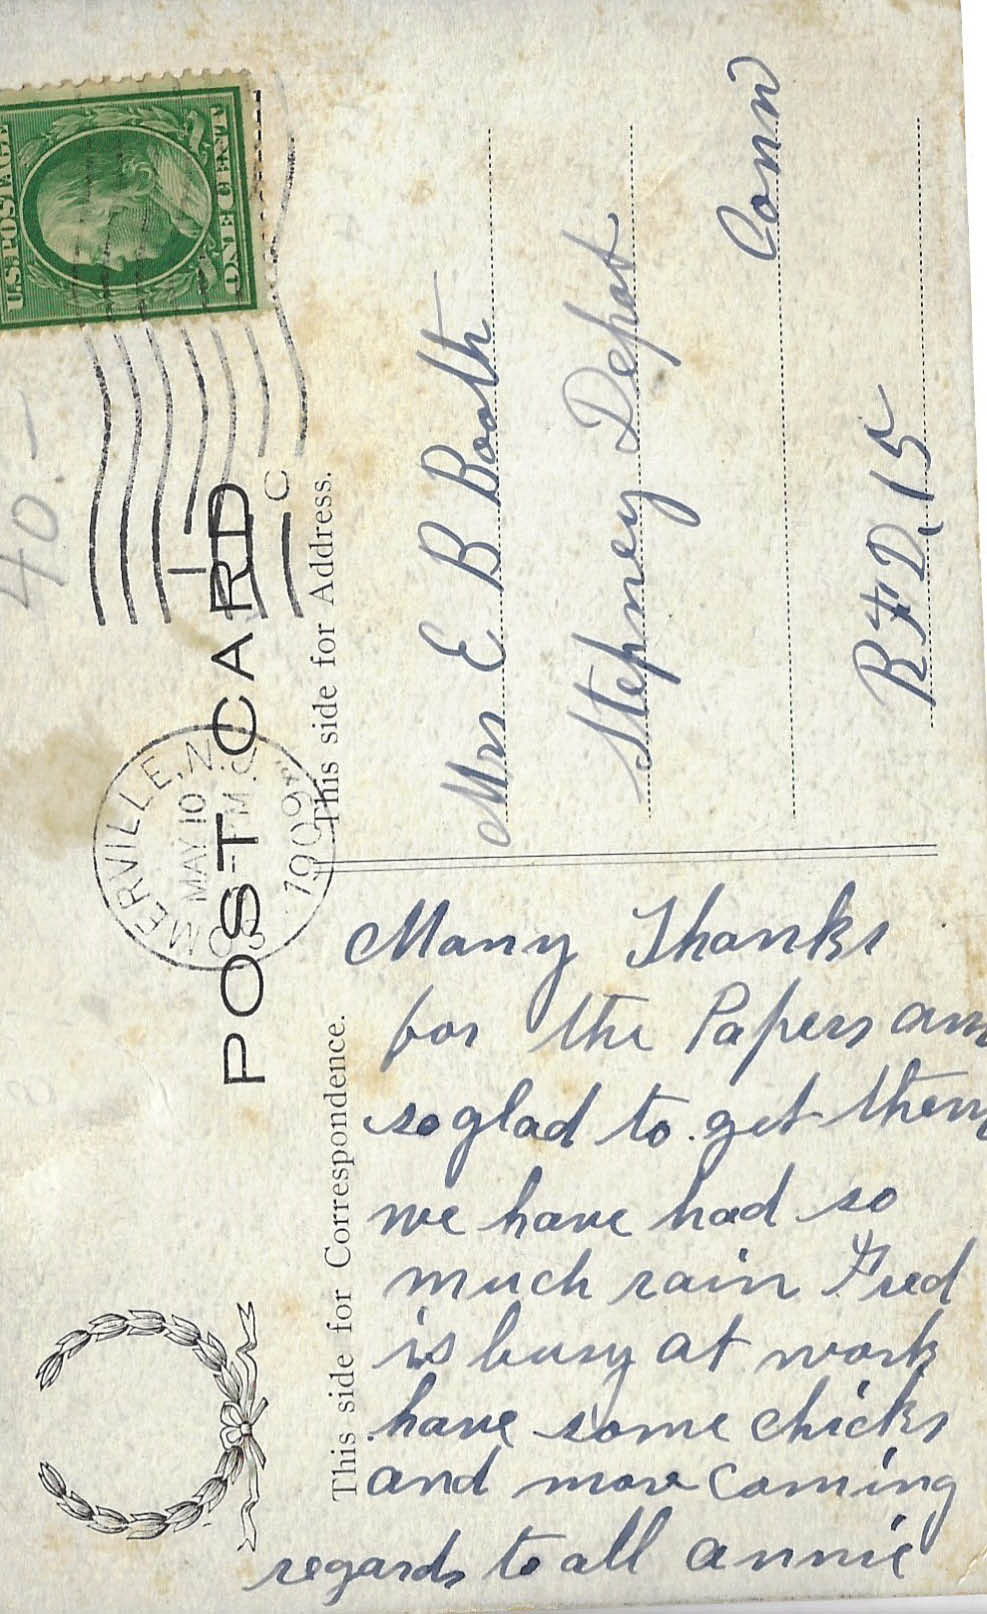 40.-
U.S. POSTAGE
ONE CENT
MERVILLE, N.
MAY 10
M.
1909
POST CARD
This side for Correspondence.
This side for Address.
Many Thanks
for the Papers am
so glad to get them
we have had so
much rain Fred
is busy at work
have some chicks
and more coming
regards to all annie
Mrs E B Booth
Stepney Depot
Conn
R F D, 15